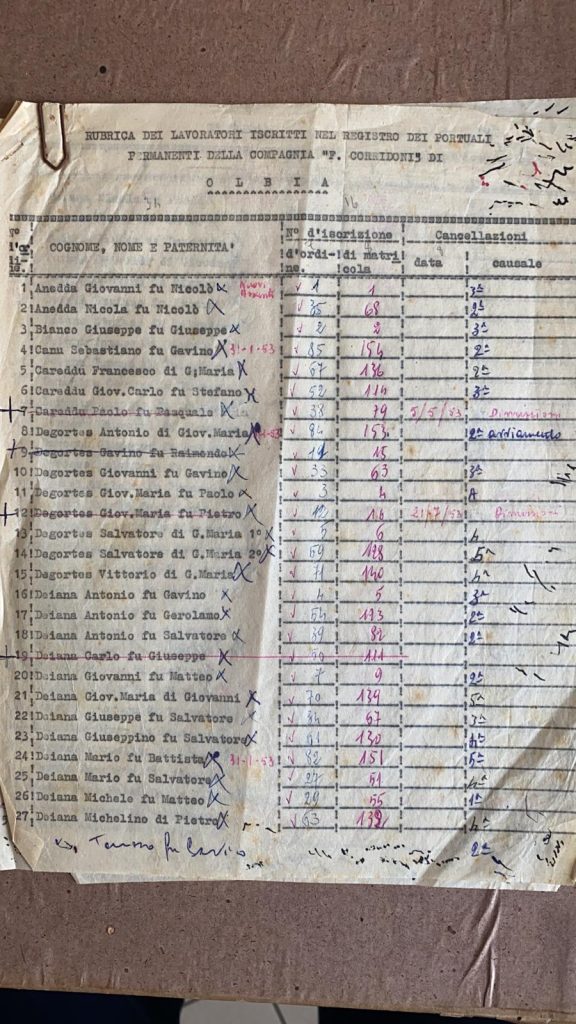 RUBRICA DEI LAVORATORI ISCRITTI NEL REGISTRO DEI PORTUALI
PERMANENTI DELLA COMPAGNIA "F. CORRIDONI" DI
O L B I A
16
N° COGNOME, NOME E PATERNITA' N° d'iscrizione Cancellazioni
d'ordi- ne. di matri cola data causale
1 Anedda Giovanni fu Nicolò 1 1 3ª
2 Anedda Nicola fu Nicolò 35 68 2ª
3 Bianco Giuseppe fu Giuseppe 2 2 3ª
4 Canu Sebastiano fu Gavino 31-1-53 85 154 2ª
5 Careddu Francesco di G;Maria 67 136 2ª
6 Careddu Giov.Carlo fu Stefano 52 114 3ª
7 Careddu Paolo fu Pasquale 38 79 5/5/53 Dimissioni
8 Degortes Antonio di Giov.Maria 84 153 2ª avviamento
9 Degortes Gavino fu Raimondo 15
10 Degortes Giovanni fu Gavino 33 63 3ª
11 Degortes Giov.Maria fu Paolo 3 4
12 Degortes Giov.Maria fu Pietro 12 21-7/53 Dimissioni
13 Degortes Salvatore di G.Maria 1° 5 6
14 Degortes Salvatore di G.Maria 2° 59 128 5ª
15 Degortes Vittorio di G.Maria 71 140 4ª
16 Deiana Antonio fu Gavino 4 5 3ª
17 Deiana Antonio fu Gerolamo 54 123 2ª
18 Deiana Antonio fu Salvatore 39 82 2ª
19 Deiana Carlo fu Giuseppe 111
20 Deiana Giovanni fu Matteo 7 9 2ª
21 Deiana Giov.Maria di Giovanni 70 139 5ª
22 Deiana Giuseppe fu Salvatore 34 67 3ª
23 Deiana Giuseppino fu Salvatore 61 130 4ª
24 Deiana Mario fu Battista 31-1-53 82 151 5ª
25 Deiana Mario fu Salvatore 27 51 4ª
26 Deiana Michele fu Matteo 29 55 1ª
27 Deiana Michelino di Pietro 63 132 4ª
fu Gavino 2ª